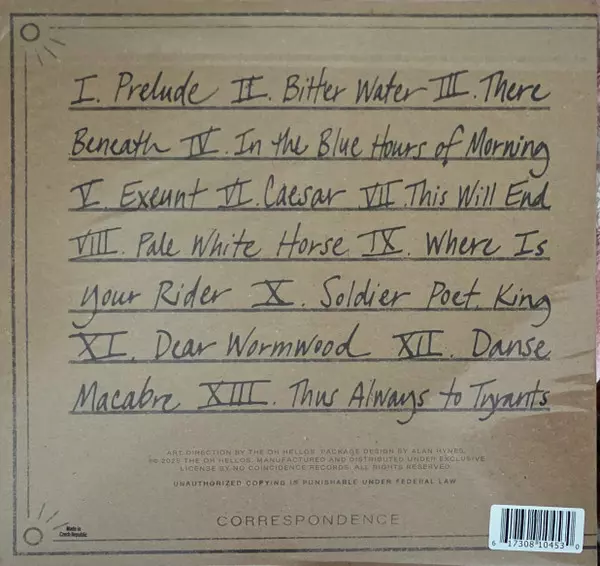 I. Prelude II. Bitter Water III. There
Beneath IV. In the Blue Hours of Morning
V. Exeunt VI. Caesar VII. This Will End
VIII. Pale White Horse IX. Where Is
your Rider X. Soldier Poet King
XI. Dear Wormwood XII. Danse
Macabre XIII. Thus Always to Tyrants
ART DIRECTION BY THE OH HELLOS. PACKAGE DESIGN BY ALAN HYNES.
THE OH HELLOS. MANUFACTURED AND DISTRIBUTED UNDER EXCLUSIVE
LICENSE BY NO COINCIDENCE RECORDS. ALL RIGHTS RESERVED
UNAUTHORIZED COPYING IS PUNISHABLE UNDER FEDERAL LAW
Made in
Czech Republic
CORRESPONDENCE
6 17308 10453 0